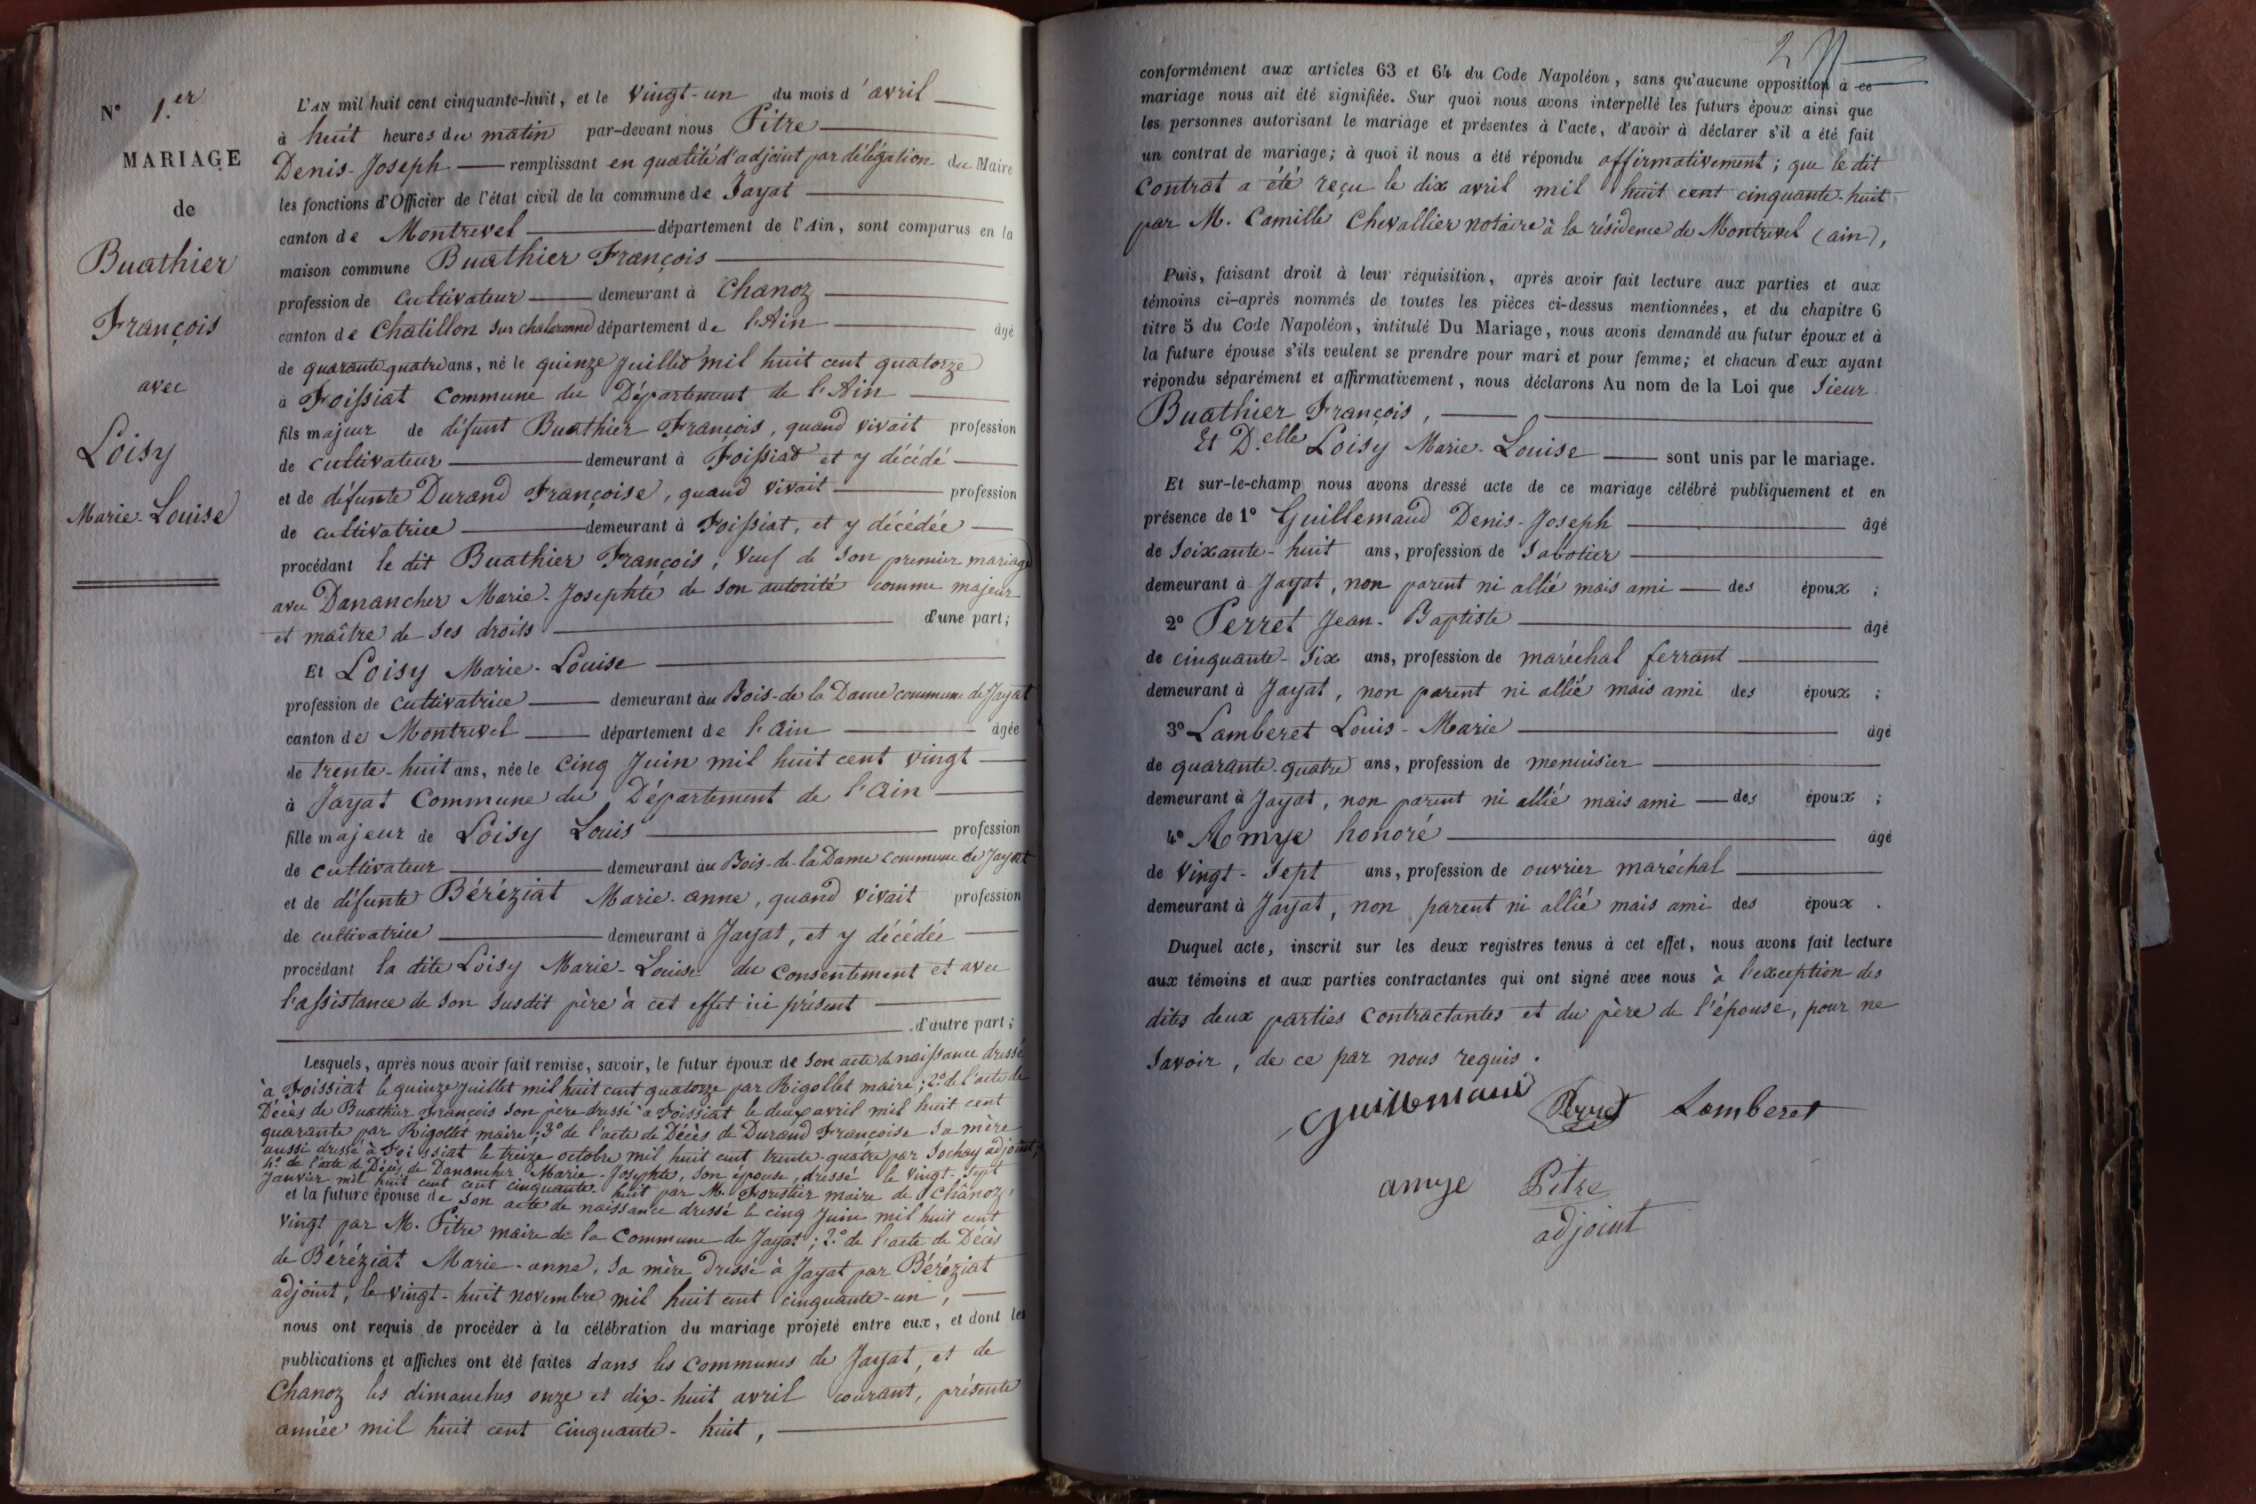 N° 1.er
MARIAGE
de
Buathier
François
avec
Loisy
Marie-Louise
L'AN mil huit cent cinquante-huit, et le vingt-un du mois d'avril
à huit heures du matin par-devant nous Pitre
Denis-Joseph remplissant en qualité d'adjoint par délégation du Maire
les fonctions d'Officier de l'état civil de la commune de Jayat
canton de Montrevel département de l'Ain, sont comparus en la
maison commune Buathier François
profession de cultivateur demeurant à Chanoz
canton de Chatillon sur chalaronne département de l'Ain âgé
de quarante-quatre ans, né le quinze juillet mil huit cent quatorze
à Foissiat commune du Département de l'Ain
fils majeur de défunt Buathier François, quand vivait profession
de cultivateur demeurant à Foissiat et y décédé
et de défunte Durand Françoise, quand vivait profession
de cultivatrice demeurant à Foissiat, et y décédée
procédant le dit Buathier François, veuf de son premier mariage
avec Danancher Marie-Josephte de son autorité comme majeur
et maître de ses droits d'une part;
Et Loisy Marie-Louise
profession de cultivatrice demeurant au Bois-de la Dame commune de Jayat
canton de Montrevel département de l'ain âgée
de trente-huit ans, née le cinq Juin mil huit cent vingt
à Jayat commune du Département de l'ain
fille majeur de Loisy Louis profession
de cultivateur demeurant au Bois-de-la Dame commune de Jayat
et de défunte Béréziat Marie-anne, quand vivait profession
de cultivatrice demeurant à Jayat, et y décédée
procédant la dite Loisy Marie-Louise du consentement et avec
l'assistance de son susdit père à cet effet ici présent
d'autre part;
Lesquels, après nous avoir fait remise, savoir, le futur époux de son acte de naissance dressé
à Foissiat le quinze juillet mil huit cent quatorze par Rigollet maire; 2.° de l'acte de
Décès de Buathier François son père dressé à Foissiat le deux avril mil huit cent
quarante par Rigollet maire; 3.° de l'acte de Décès de Durand Françoise sa mère
aussi dressé à Foissiat le treize octobre mil huit cent trente-quatre par Sochay adjoint;
4.° de l'acte de Décès de Danancher Marie-Josephte, son épouse, dressé le vingt-sept
Janvier mil huit cent cent cinquante-huit par M. Forestier maire de Chânoz,
et la future épouse de son acte de naissance dressé le cinq Juin mil huit cent
vingt par M. Pitre maire de la commune de Jayat; 2.° de l'acte de Décès
de Béréziat Marie-anne, sa mère dressé à Jayat par Béréziat
adjoint, le vingt-huit novembre mil huit cent cinquante-un,
nous ont requis de procéder à la célébration du mariage projeté entre eux, et dont les
publications et affiches ont été faites dans les communes de Jayat, et de
Chanoz les dimanches onze et dix-huit avril courant, présente
année mil huit cent cinquante-huit,
conformément aux articles 63 et 64 du Code Napoléon, sans qu'aucune opposition à ce
mariage nous ait été signifiée. Sur quoi nous avons interpellé les futurs époux ainsi que
les personnes autorisant le mariage et présentes à l'acte, d'avoir à déclarer s'il a été fait
un contrat de mariage; à quoi il nous a été répondu affirmativement; que le dit
contrat a été reçu le dix avril mil huit cent cinquante-huit
par M. Camille Chevallier notaire à la résidence de Montrevel (ain),
Puis, faisant droit à leur réquisition, après avoir fait lecture aux parties et aux
témoins ci-après nommés de toutes les pièces ci-dessus mentionnées, et du chapitre 6
titre 5 du Code Napoléon, intitulé Du Mariage, nous avons demandé au futur époux et à
la future épouse s'ils veulent se prendre pour mari et pour femme; et chacun d'eux ayant
répondu séparément et affirmativement, nous déclarons Au nom de la Loi que Sieur
Buathier François,
Et D.elle Loisy Marie-Louise sont unis par le mariage.
Et sur-le-champ nous avons dressé acte de ce mariage célébré publiquement et en
présence de 1° Guillemaud Denis-Joseph âgé
de soixante-huit ans, profession de sabotier
demeurant à Jayat, non parent ni allié mais ami des époux;
2° Perret Jean-Baptiste âgé
de cinquante-six ans, profession de maréchal ferrant
demeurant à Jayat, non parent ni allié mais ami des époux;
3° Lamberet Louis-Marie âgé
de quarante-quatre ans, profession de menuisier
demeurant à Jayat, non parent ni allié mais ami des époux;
4° Amye honoré âgé
de vingt-sept ans, profession de ouvrier maréchal
demeurant à Jayat, non parent ni allié mais ami des époux.
Duquel acte, inscrit sur les deux registres tenus à cet effet, nous avons fait lecture
aux témoins et aux parties contractantes qui ont signé avec nous à l'exception des
dites deux parties contractantes et du père de l'épouse, pour ne
savoir, de ce par nous requis.
Guillemaud Perret Lamberet
amye Pitre
adjoint